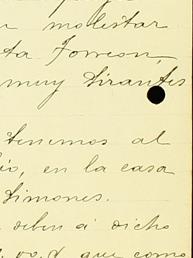 r molestar
ta Torreon,
muy tirantes
tenemos al
io, en la casa
Limones.
deben á dicho
que como